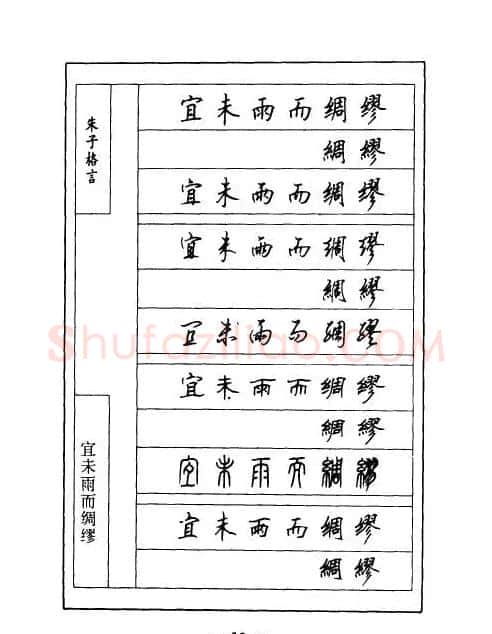 朱子格言
宜未雨而绸缪
宜未雨而绸缪
綢繆
宜未雨而绸缪
宜未雨而绸缪
綢繆
宜未雨而绸缪
宜未雨而绸缪
綢繆
宜未雨而綢繆
宜未雨而绸缪
綢繆
Shufaziliao.COM